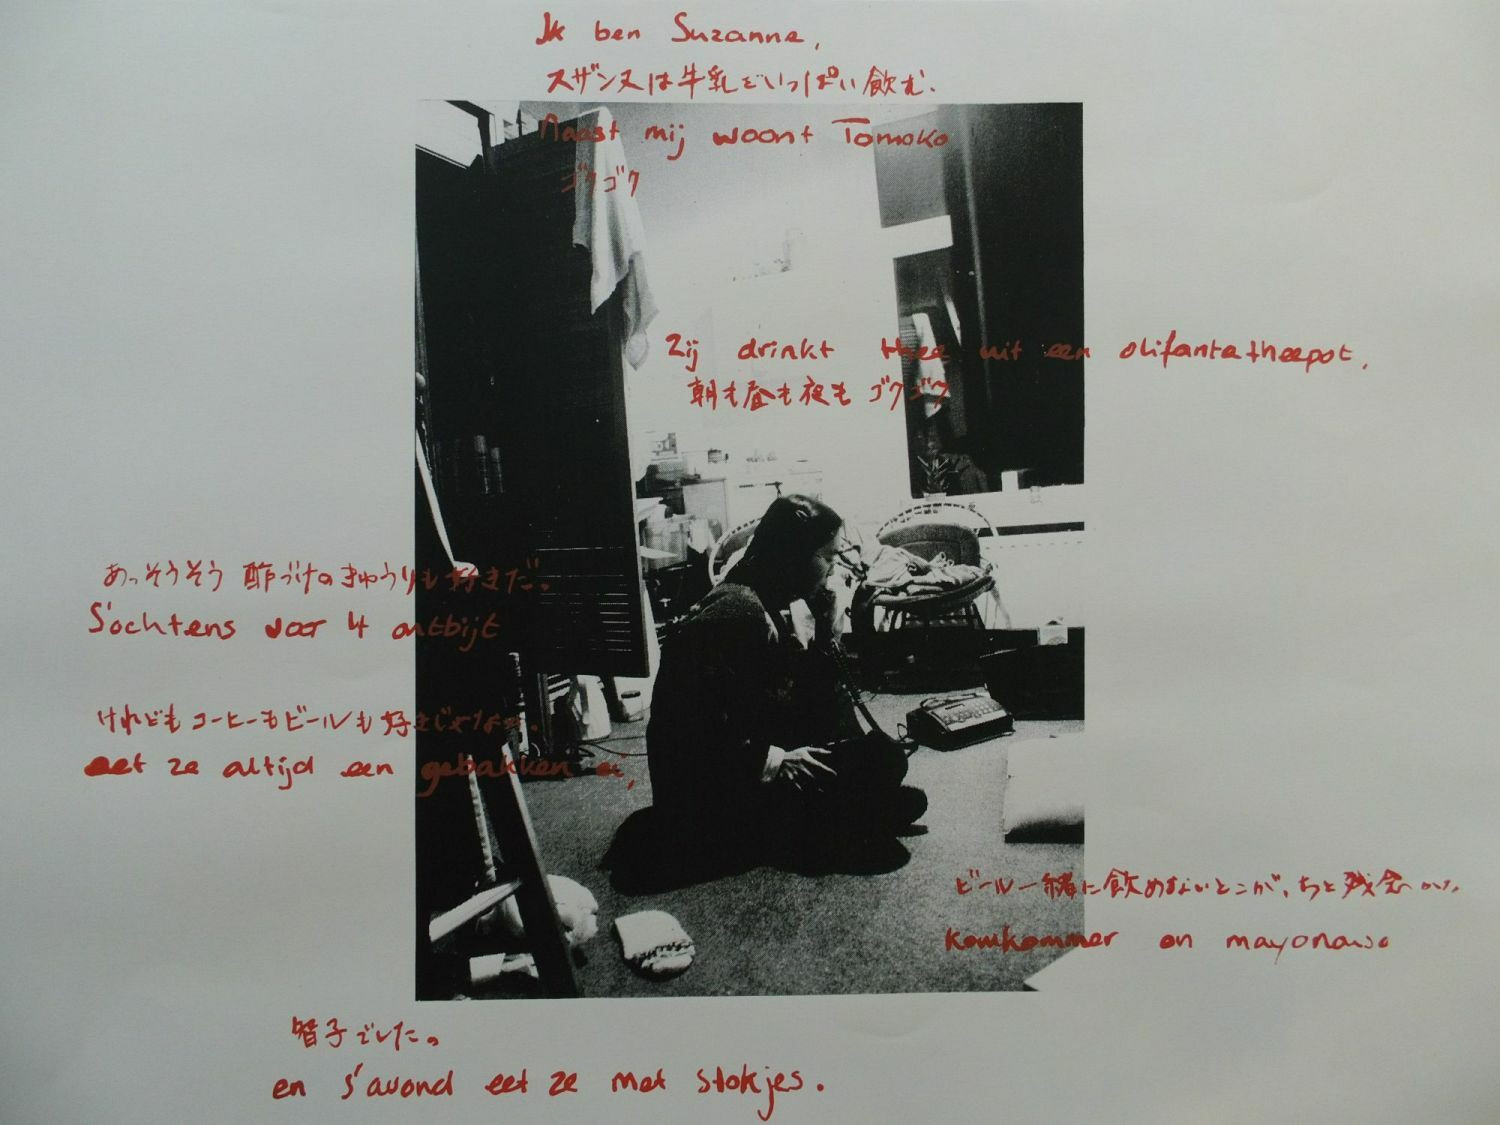 Ik ben Suzanne,
スザンヌは牛乳をいっぱい飲む.
Naast mij woont Tomoko
ゴクゴク
Zij drinkt thee uit een olifantatheepot.
朝も昼も夜も ゴクゴク
あっそうそう 酢づけのきゅうりも好きだ。
S'ochtens voor 4 ontbijt
けれどもコーヒーもビールも好きじゃない.
eet ze altijd een gebakken ei,
ビール一緒に飲めないとこが、ちと残念
komkommer en mayonaise
智子でした。
en s'avond eet ze met stokjes.